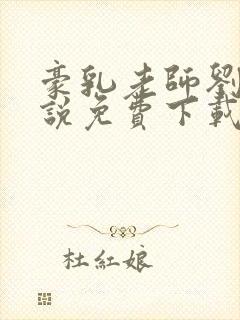 豪乳老師劉
說免費下載
杜紅娘